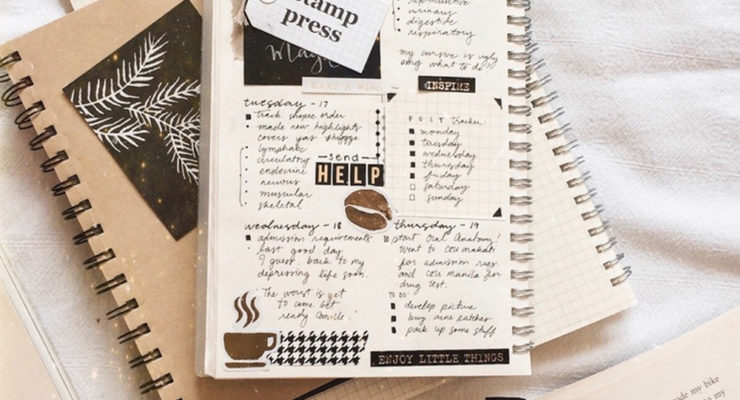 stamp
press
MAKE A WISH
tuesday - 17
track shopee order
made new highlights
covers
lymphatic
circulatory
endocrine
nervous
muscular
skeletal
send
HELP
wednesday - 18
admission requirements
last good day
I guess. back to my
depressing life soon.
"The worst is yet
to come. Get
ready Camille."
urinary
digestive
respiratory
my cursive is ugly
omg what to do
INSPIRE
POST Tracker:
monday
tuesday
wednesday
thursday
friday
saturday
sunday
thursday - 19
start Oral Anatomy!
Went to ceu makati
for admission reqs.
and ceu manila for
drug test.
TO DO:
develop picture
buy patches
pack up some stuff
ENJOY LITTLE THINGS
my bike
my